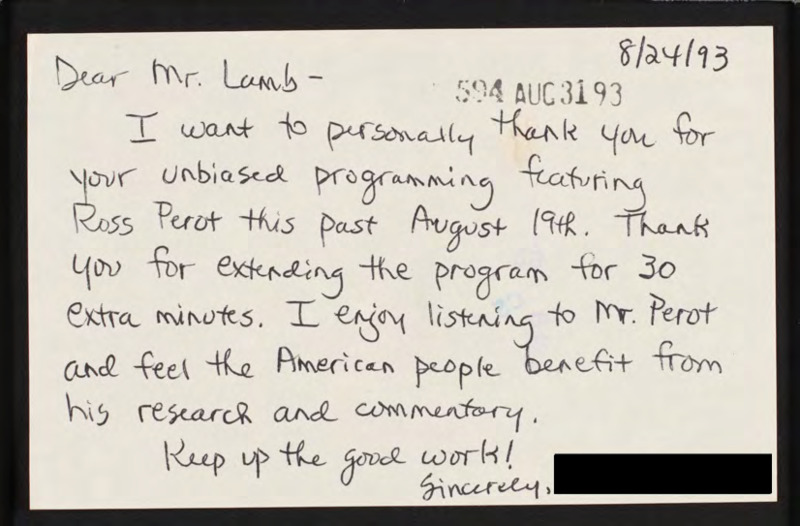 8/24/93
Dear Mr. Lamb -
594 AUG 31 93
I want to personally thank you for
your unbiased programming featuring
Ross Perot this past August 19th. Thank
you for extending the program for 30
extra minutes. I enjoy listening to Mr. Perot
and feel the American people benefit from
his research and commentary.
Keep up the good work!
Sincerely,